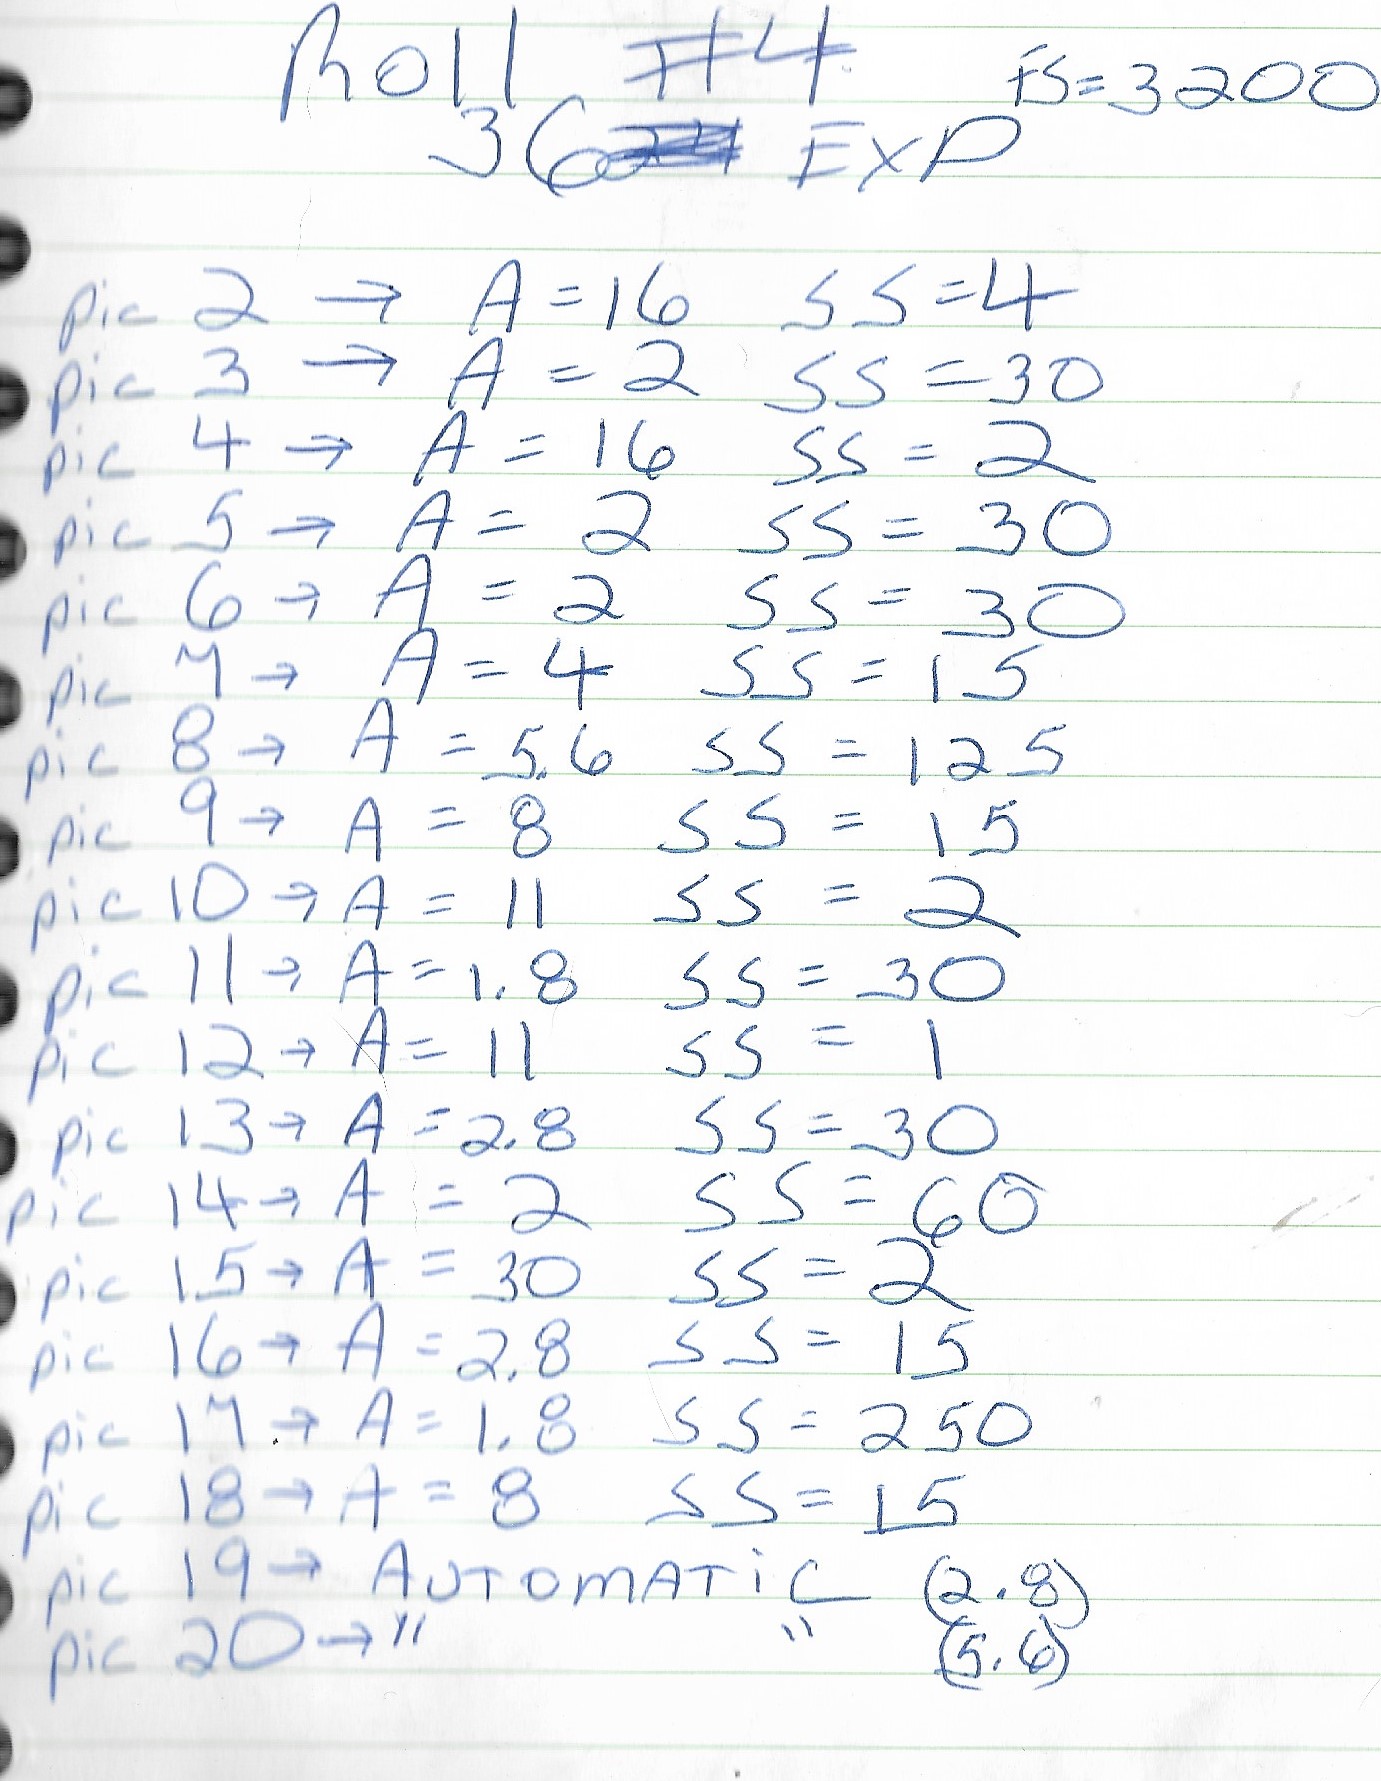 Roll #4 FS=3200
36 EXP
pic 2 → A = 16 SS = 4
pic 3 → A = 2 SS = 30
pic 4 → A = 16 SS = 2
pic 5 → A = 2 SS = 30
pic 6 → A = 2 SS = 30
pic 7 → A = 4 SS = 15
pic 8 → A = 5.6 SS = 125
pic 9 → A = 8 SS = 15
pic 10 → A = 11 SS = 2
pic 11 → A = 1.8 SS = 30
pic 12 → A = 11 SS = 1
pic 13 → A = 2.8 SS = 30
pic 14 → A = 2 SS = 60
pic 15 → A = 30 SS = 2
pic 16 → A = 2.8 SS = 15
pic 17 → A = 1.8 SS = 250
pic 18 → A = 8 SS = 15
pic 19 → AUTOMATiC (2.8)
pic 20 → " " (5.6)